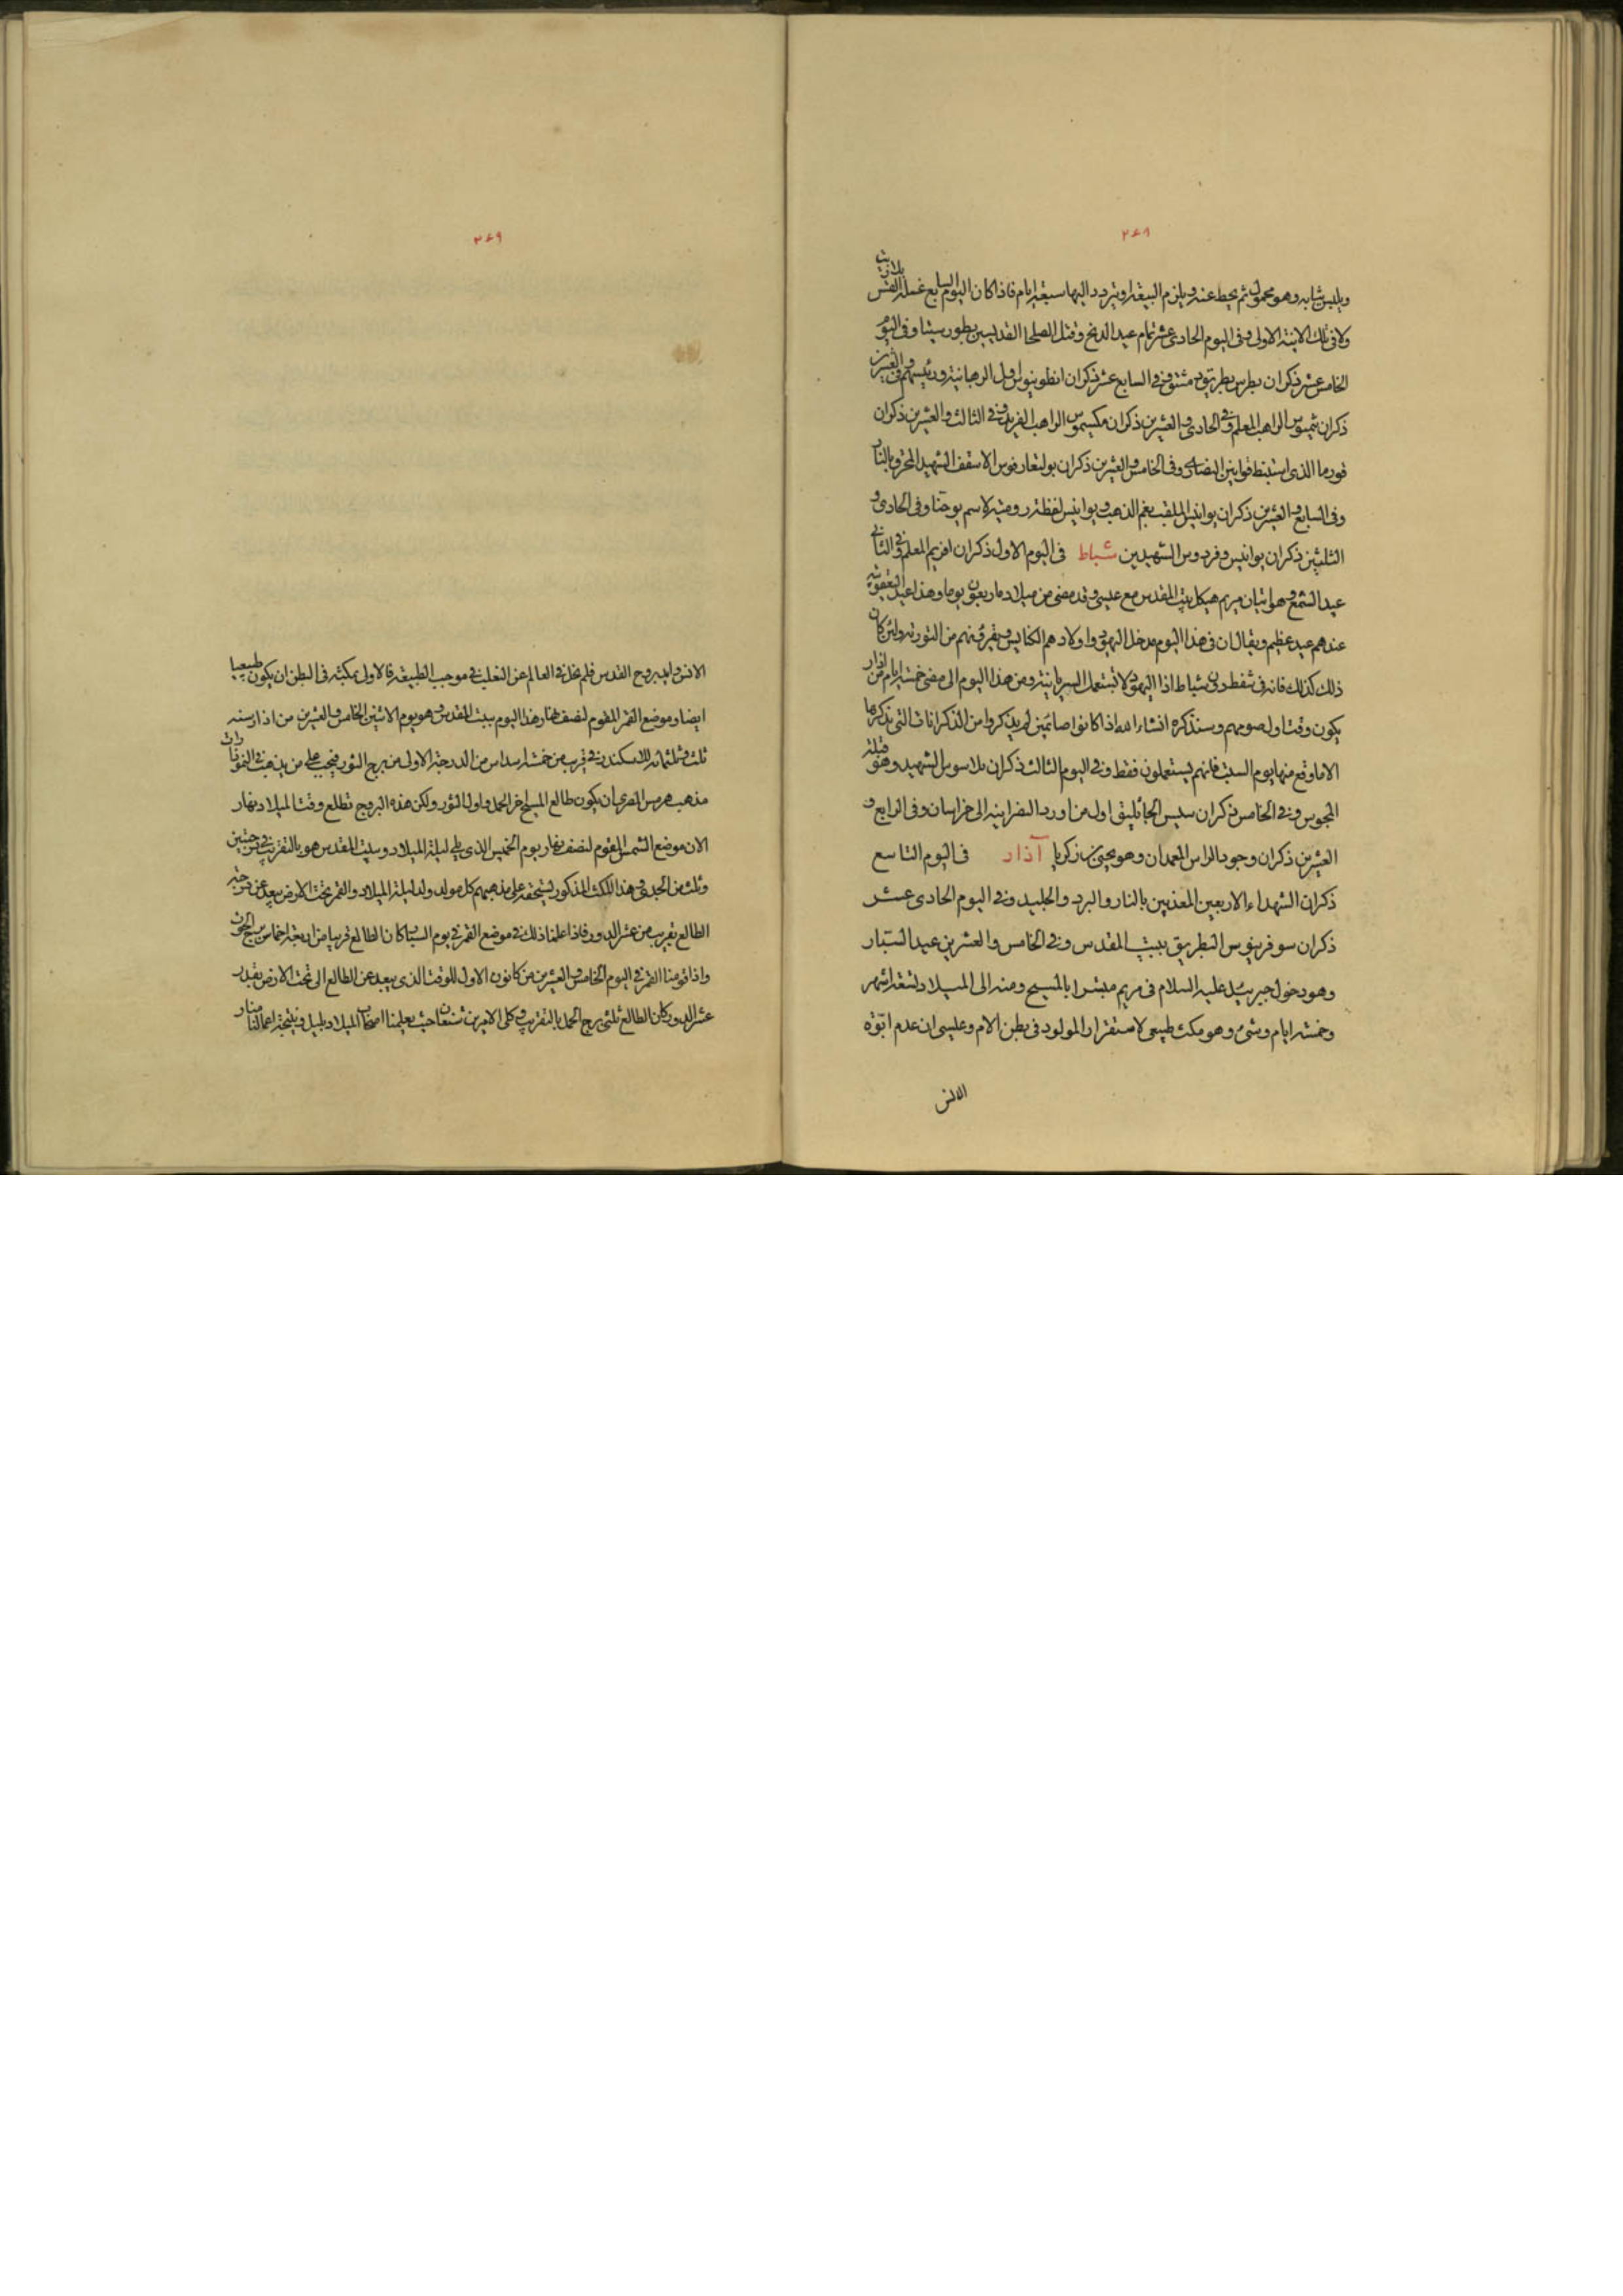 ٢٤٨
ويلبس ثيابه وهو محمول ثم يحط عنه ويلزم البيعة او يتردد اليها سبعة ايام فاذا كان اليوم السابع غسله القس
بلا زيت
ولا فى تلك الانية الاولى وفى اليوم الحادى عشر تمام عيد الدنح وقتل الصلحا القديسين بطور سينا وفى اليوم
الخامس عشر ذكران بطرس بطريق دمشق وفى السابع عشر ذكران انطونيوس اول الرهبانية ورئيسهم وفى العشرين
ذكران الراهب المعلم وفى الحادى والعشرين ذكران مكسيموس الراهب الفريد وفى الثالث والعشرين ذكران
قورما الذى استنبط قوانين النصارى وفى الخامس والعشرين ذكران بولتعارفوس الاسقف الشهيد المحرق بالنار
وفى السابع والعشرين ذكران يوانيس الملقب بفم الذهب ويوانيس لفظة رومية لاسم يوحنا وفى الحادى و
الثلثين ذكران يوانيس وفردوس الشهيدين شباط فى اليوم الاول ذكران افريم المعلم وفى الثانى
عيد الشمع وهو اتيان مريم هيكل بيت المقدس مع عيسى وقد مضى من ميلاده اربعون يوما وهذا عيد اليعقوبية
عندهم عيد عظيم ويقال ان فى هذا اليوم يدخل اليهود اولادهم الكنايس ويقرؤنهم من التورية ولئن كان
ذلك كذلك فانه فى شفط دون شباط اذ اليهود لا تستعمل السريانية ومن هذا اليوم الى مضى خمسة ايام من اذار
يكون وقت اول صومهم وسنذكره انشاء الله اذا كانوا صائمين لم يذكروا من الذكرانات التى نذكرها
الا ما وقع منها يوم السبت فانهم يستعملون فقط وفى اليوم الثالث ذكران بلاسوس الشهيد وهو قتلة
المجوس وفى الخامس ذكران سيس الجاثليق اول من اورد النصرانية الى خراسان وفى الرابع و
العشرين ذكران وجود الراس المعمدان وهو يحيى بن زكريا آذار فى اليوم التاسع
ذكران الشهداء الاربعين المعذبين بالنار والبرد والجليد وفى اليوم الحادى عشر
ذكران سوفرينوس البطريق ببيت المقدس وفى الخامس والعشرين عيد السبار
وهو دخول جبريل عليه السلام فى مريم مبشرا بالمسيح ومنه الى الميلاد تسعة اشهر
وخمسة ايام وشئ وهو مكث طبيعى لاستقرار المولود فى بطن الام وعيسى ان عدم ابوة
الانس
٢٤٩
الانس وايد بروح القدس فلم يخل فى العالم عن التغلب فى موجب الطبيعة فالاولى بمكثه فى البطن ان يكون طبيعيا
ايضا وموضع القمر المقوم لنصف نهار هذا اليوم ببيت المقدس وهو يوم الاثنين الخامس والعشرين من اذار سنة
ثلث وثلثمائة للاسكندر فى قريب من خمسة اسداس من الدرجة الاولى من برج الثور فيجب على من يذهب فى النمودارات
مذهب هرمس المصرى ان يكون طالع المسيح اخر الحمل واول الثور ولكن هذه البروج تطلع وقت الميلاد نهار
الان موضع الشمس المقوم لنصف نهار يوم الخميس الذى يلى ليلة الميلاد وببيت المقدس هو بالتقريب فى درجتين
وثلث من الجدى وهذا المكث المذكور يستحقه على مذهبهم كل مولود ولد ليلة الميلاد والقمر تحت الارض بعده عن درجة
الطالع بقريب من عشر الدور فاذا علمنا ذلك فى موضع القمر فى يوم السبار كان الطالع قريبا من اربعة اخماس برج الحوت
واذا قومنا القمر فى اليوم الخامس والعشرين من كانون الاول للوقت الذى يبعد عن الطالع الى تحت الارض بقدر
عشر الدور كان الطالع ثلثى برج الحمل بالتقريب وكلى الامرين شنعان حيث يعلمنا اصحاب الميلاد بليل ونتيجة اعمالنا منار